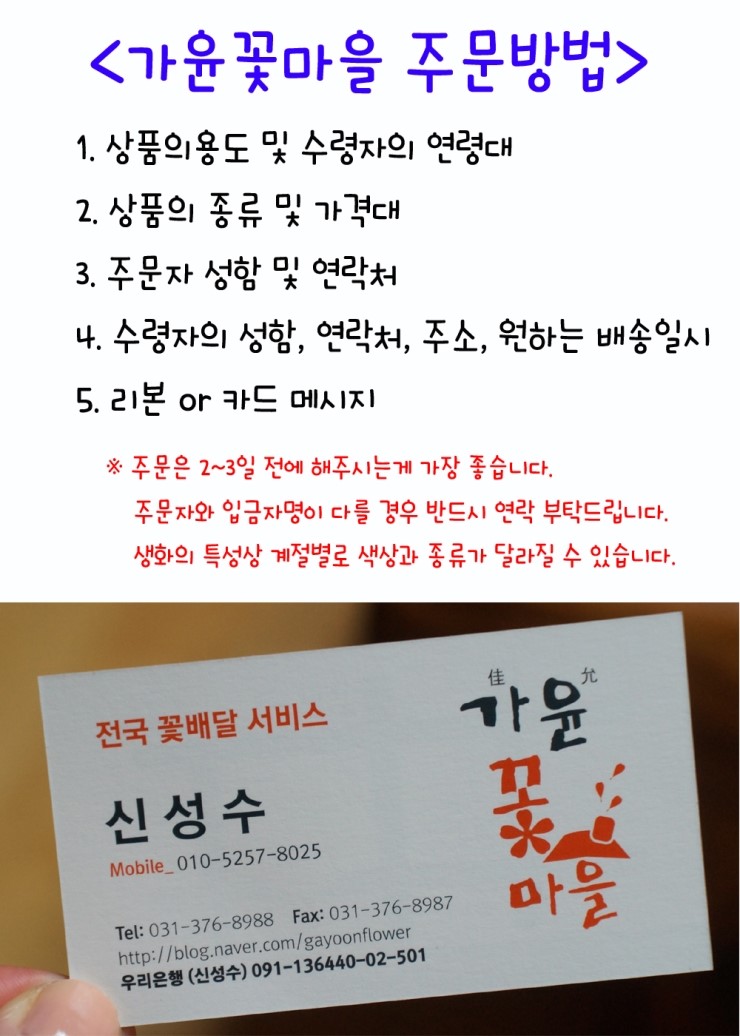 <가윤꽃마을 주문방법>
1. 상품의용도 및 수령자의 연령대
2. 상품의 종류 및 가격대
3. 주문자 성함 및 연락처
4. 수령자의 성함, 연락처, 주소, 원하는 배송일시
5. 리본 or 카드 메시지
※ 주문은 2~3일 전에 해주시는게 가장 좋습니다.
주문자와 입금자명이 다를 경우 반드시 연락 부탁드립니다.
생화의 특성상 계절별로 색상과 종류가 달라질 수 있습니다.
佳 允
가윤
꽃
마을
전국 꽃배달 서비스
신성수
Mobile_ 010-5257-8025
Tel: 031-376-8988 Fax: 031-376-8987
http://blog.naver.com/gayoonflower
우리은행 (신성수) 091-136440-02-501